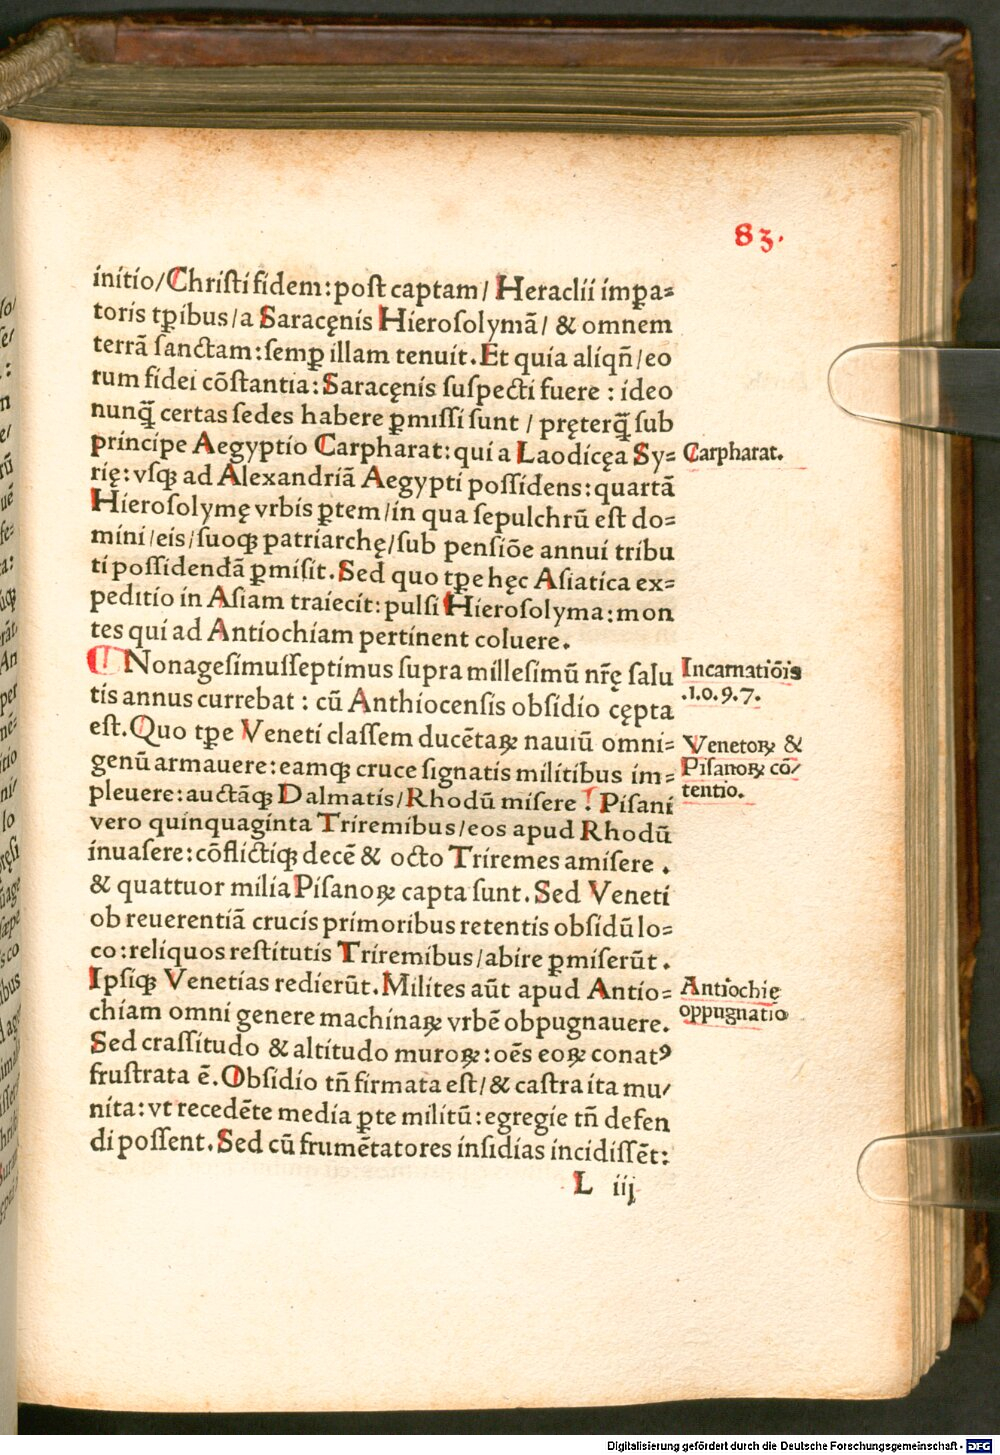 83.
initio/Chriſti fidem:poſt captam/ Heraclii imꝑa⸗
toris tꝑibus/a Saracęnis Hieroſolymā/ & omnem
terrā ſanctam:ſemꝑ illam tenuit. Et quia aliqñ/eo
rum fidei cōſtantia: Saracęnis ſuſpecti fuere : ideo
nunꝗ̄ certas ſedes habere ꝑmiſſi ſunt / pręterꝗ̄ ſub
principe Aegyptio Carpharat: qui a Laodicęa Sy⸗
Carpharat.
rię: vſqꝫ ad Alexandriā Aegypti poſſidens: quartā
Hieroſolymę vrbis ꝑtem/in qua ſepulchrū eſt do⸗
mini/eis/ſuoqꝫ patriarchę/ſub penſiōe annui tribu
ti poſſidendā ꝑmiſit. Sed quo tꝑe hęc Aſiatica ex⸗
peditio in Aſiam traiecit: pulſi Hieroſolyma: mon
tes qui ad Antiochiam pertinent coluere.
Nonageſimuſſeptimus ſupra milleſimū nr̄ę ſalu
Incarnatiōis
tis annus currebat : cū Anthiocenſis obſidio cępta
.1.0.9.7.
eſt. Quo tꝑe Veneti claſſem ducētaꝝ nauiū omni⸗
Venetoꝝ &
genū armauere: eamqꝫ cruce ſignatis militibus im⸗
Piſanoꝝ cō/
pleuere: auctāqꝫ Dalmatis/Rhodū miſere : Piſani
tentio.
vero quinquaginta Triremibus/eos apud Rhodū
inuaſere: cōflictiqꝫ decē & octo Triremes amiſere .
& quattuor milia Piſanoꝝ capta ſunt. Sed Veneti
ob reuerentiā crucis primoribus retentis obſidū lo⸗
co: reliquos reſtitutis Triremibus/abire ꝑmiſerūt .
Ipſiqꝫ Venetias redierūt. Milites aūt apud Antio⸗
Antiochię
chiam omni genere machinaꝝ vrbē obpugnauere.
oppugnatio
Sed craſſitudo & altitudo muroꝝ: oēs eoꝝ conatꝰ
fruſtrata ē. Obſidio tñ firmata eſt/& caſtra ita mu/
nita: vt recedēte media ꝑte militū: egregie tñ defen
di poſſent. Sed cū frumētatores inſidias incidiſſēt:
L iij
Digitalisierung gefördert durch die Deutsche Forschungsgemeinschaft - DFG